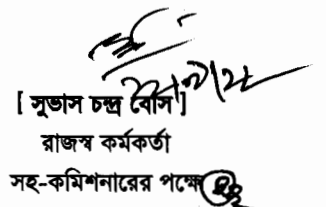 [ সুভাস চন্দ্র বোস ]
রাজস্ব কর্মকর্তা
সহ-কমিশনারের পক্ষে